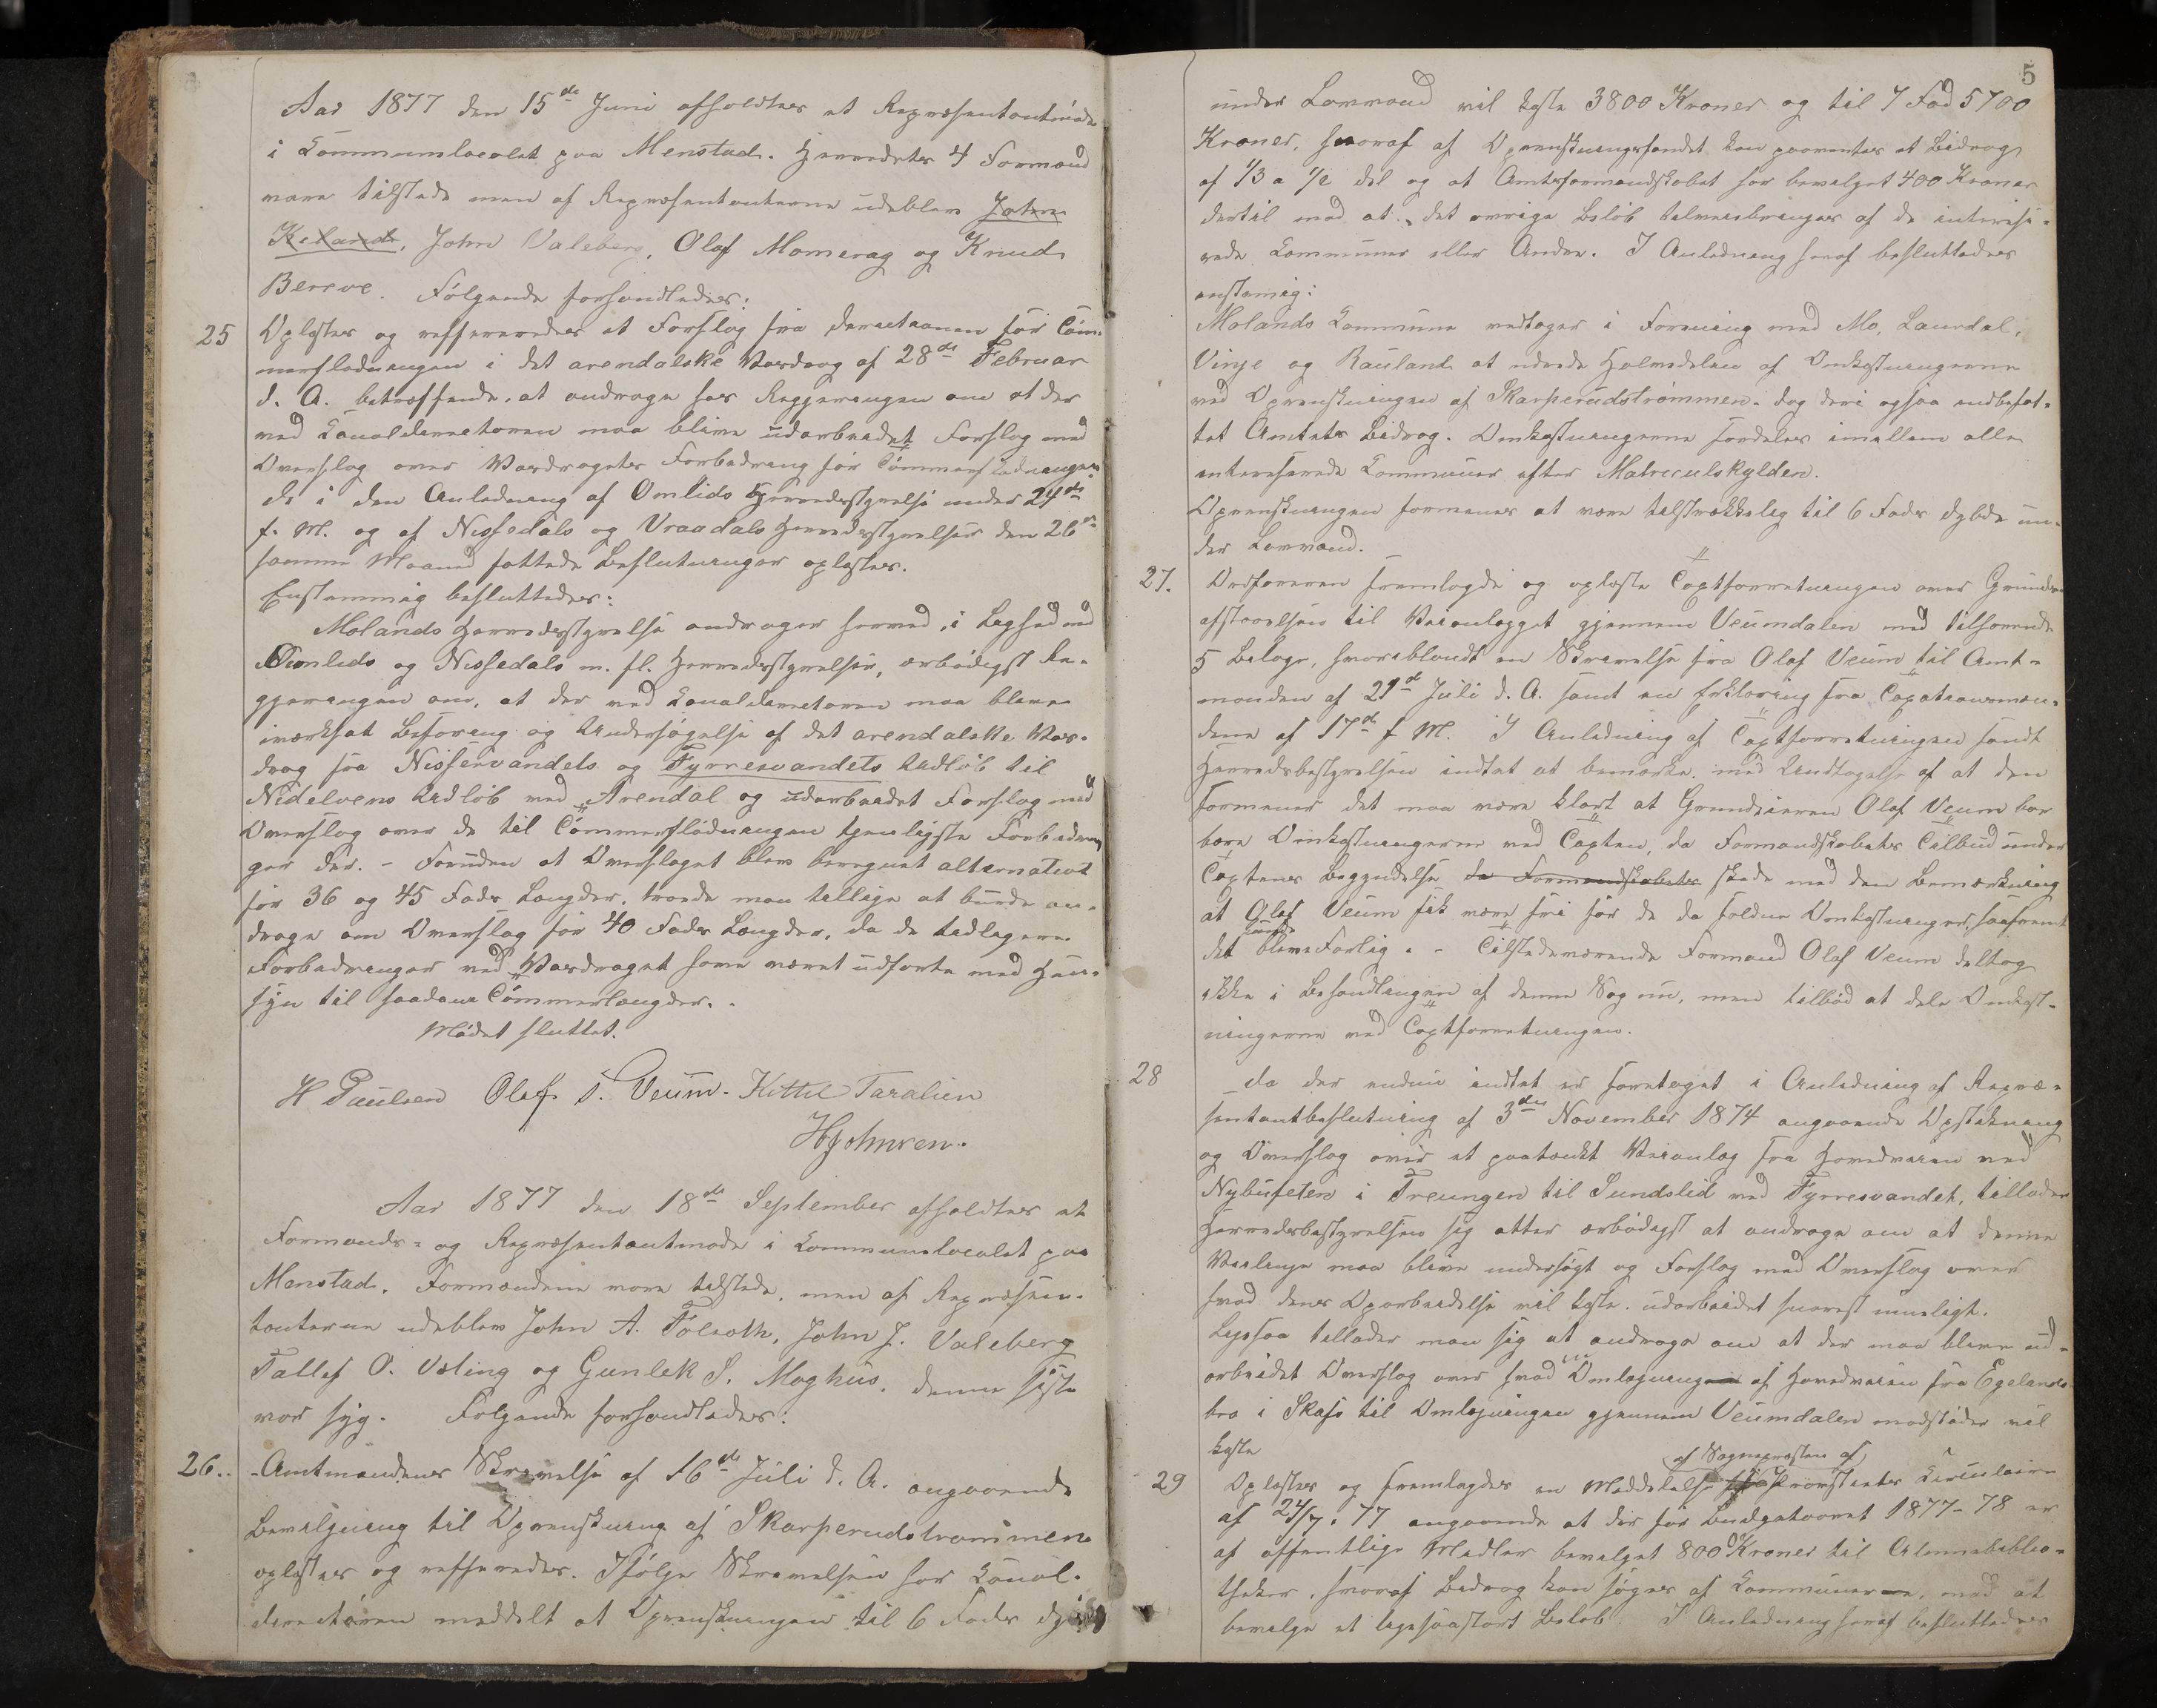 Aar 1877 den 15de Juni afholdtes et Repræsentantmøde
i Communelocalet paa Menstad. Herredets 4 Formænd
vare tilstede men af Repræsentanterne udeblev John
Kiland, John Valeberg, Olaf Momrag og Knud
Bereve. Følgende forhandledes:
25 Oplæstes og reffereredes et Forslag fra Directionen for Tøm-
merflødningen i det arendalske Vasdrag af 28de Februar
d. A. betræffende at andrage hos Regjeringen om at der
ved Canaldirectøren maa blive udarbeidet Forslag med
Overslag over Vasdragets Forbedring for Tømmerflødningen
De i den Anledning af Omlids Herredsstyrelse under 24de
f. M. og af Nissedals og Vraadals Herredsstyrelser den 26de
samme Maaned fattede Beslutninger oplæstes.
Enstemmig besluttedes:
Molands Herredsstyrelse andrager herved, i Lighed med
Omlids og Nissedals m. fl. Herredsstyrelser, ærbødigst Re-
gjeringen om, at der ved Canaldirectøren maa blive
iværksat Befaring og Undersøgelse af det arendalske Vas-
drag fra Nisservandets og Fyrresvandets Udløb til
Nidelvens Udløb ved Arendal og udarbeidet Forslag med
Overslag over de til Tømmerflødningen tjenligste Forbedrin
ger der. - Foruden at Overslaget blev beregnet alternativt
for 36 og 45 Fods Længder, troede man tillige at burde an-
drage om Overslag for 40 Fods Længder, da de tidligere
Forbedringer ved Vasdraget have været udførte med Hen-
syn til saadane Tømmerlængder. -
Mødet sluttet.
H Paulsen Olaf S. Veum. Kittil Taralien
H Johnsen.
Aar 1877 den 18de September afholdtes et
Formands- og Repræsentantmøde i Communelocalet paa
Menstad. Formændene vare tilstede, men af Repræsen-
tanterne udeblev John A. Tolvoth, John J. Valeberg
Tallef O. Veling og Gunlek S. Moghus, denne sidste
var syg. Følgende forhandledes:
26.. Amtmandens Skrivelse af 16de Juli d. A. angaaende
Bevilgning til Oprenskning af Skarperudstrømmen
oplæstes og reffereredes. Ifølge Skrivelsen har Canal-
directøren meddelt at Oprenskningen til 6 Fods dybde
5
under Lavvand vil koste 3800 Kroner og til 7 Fod 5700
Kroner, hvoraf af Oprenskningsfondet kan paaventes et Bidrag
af 1/3 a 1/2 del og at Amtsformandskabet har bevilget 400 Kroner
dertil mod at det øvrige Beløb tilveiebringes af de interesse-
rede Communer eller Andre. I Anledning heraf besluttedes
enstemig:
Molands Commune vedtager i Forening med Mo, Laurdal,
Vinje og Rauland at udrede Halvdelen af Omkostningerne
ved Oprenskningen af Skarperudstrømmen. dog deri ogsaa indbefat-
tet Amtets Bidrag. Omkostningerne fordeles imellem alle
interesserede Communer efter Matriculskylden.
Oprenskningen formenes at være tilstrækkelig til 6 Fods dybde un-
der Lavvand.
27. Ordføreren fremlagde og oplæste Taxtforretningen over Grund-
afstaaelsen til Veianlægget gjennem Veumdalen med tilhørende
5 Bilage, hvoriblandt en Skrivelse fra Olaf Veum til Amt-
manden af 21de Juli d. A. samt en Erklæring fra Taxationsmæn-
dene af 17de f M. I Anledning af Taxtforretningen fandt
Herredsbestyrelsen indtet at bemærke, med Undtagelse af at den
formener det maa være klart at Grundeieren Olaf Veum bør
bære Omkostningerne ved Taxten, da Formandskabets Tilbud under
Taxtens Begyndelse da Formandskabets skede med den Bemærkning
at Olaf Veum fik være fri for de da faldne Omkostninger, saafremt
det blev Forlig. - Tilstedeværende Formand Olaf Veum deltog
ikke i Behandlingen af denne Sag nu, men tilbød at dele Omkost-
ningerne ved Taxtforretningen.
28 Da der endnu indtet er foretaget i Anledning af Repræ-
sentantbeslutning af 3die November 1874 angaaende Opstikning
og Overslag over et paatænkt Veianlæg fra Hovedveien ved
Nybufeten i Treungen til Sundslid ved Fyrresvandet, tillader
Herredsbestyrelsen sig atter ærbødigst at andrage om at denne
Veilinje maa blive undersøgt og Forslag med Overslag over
hvad denes Oparbeidelse vil koste, udarbeidet snarest mueligt.
Ligesaa tillader man sig at andrage om at der maa blive ud-
arbeidet Overslag over hvad Omlægning af Hovedveien fra Egelands-
bro i Skafse til Omlægningen gjennem Veumdalen modstøder vil
koste
29 Oplæstes og fremlagdes en Meddelelse af Sognepresten af Provstiets Circulaire
af 24/7. 77 angaaende at der for Budgetaaret 1877-78 er
af offentlige Midler bevilget 8000 Kroner til Almuebiblio-
theker, hvoraf Bidrag kan søges af Communer, mod at
bevilge et ligesaastort Beløb. I Anledning heraf besluttedes